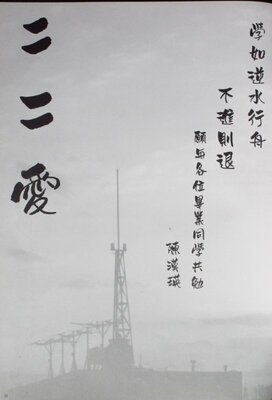 學如逆水行舟
不進則退
願与各位畢業同學共勉
陳漢瑛
二二愛